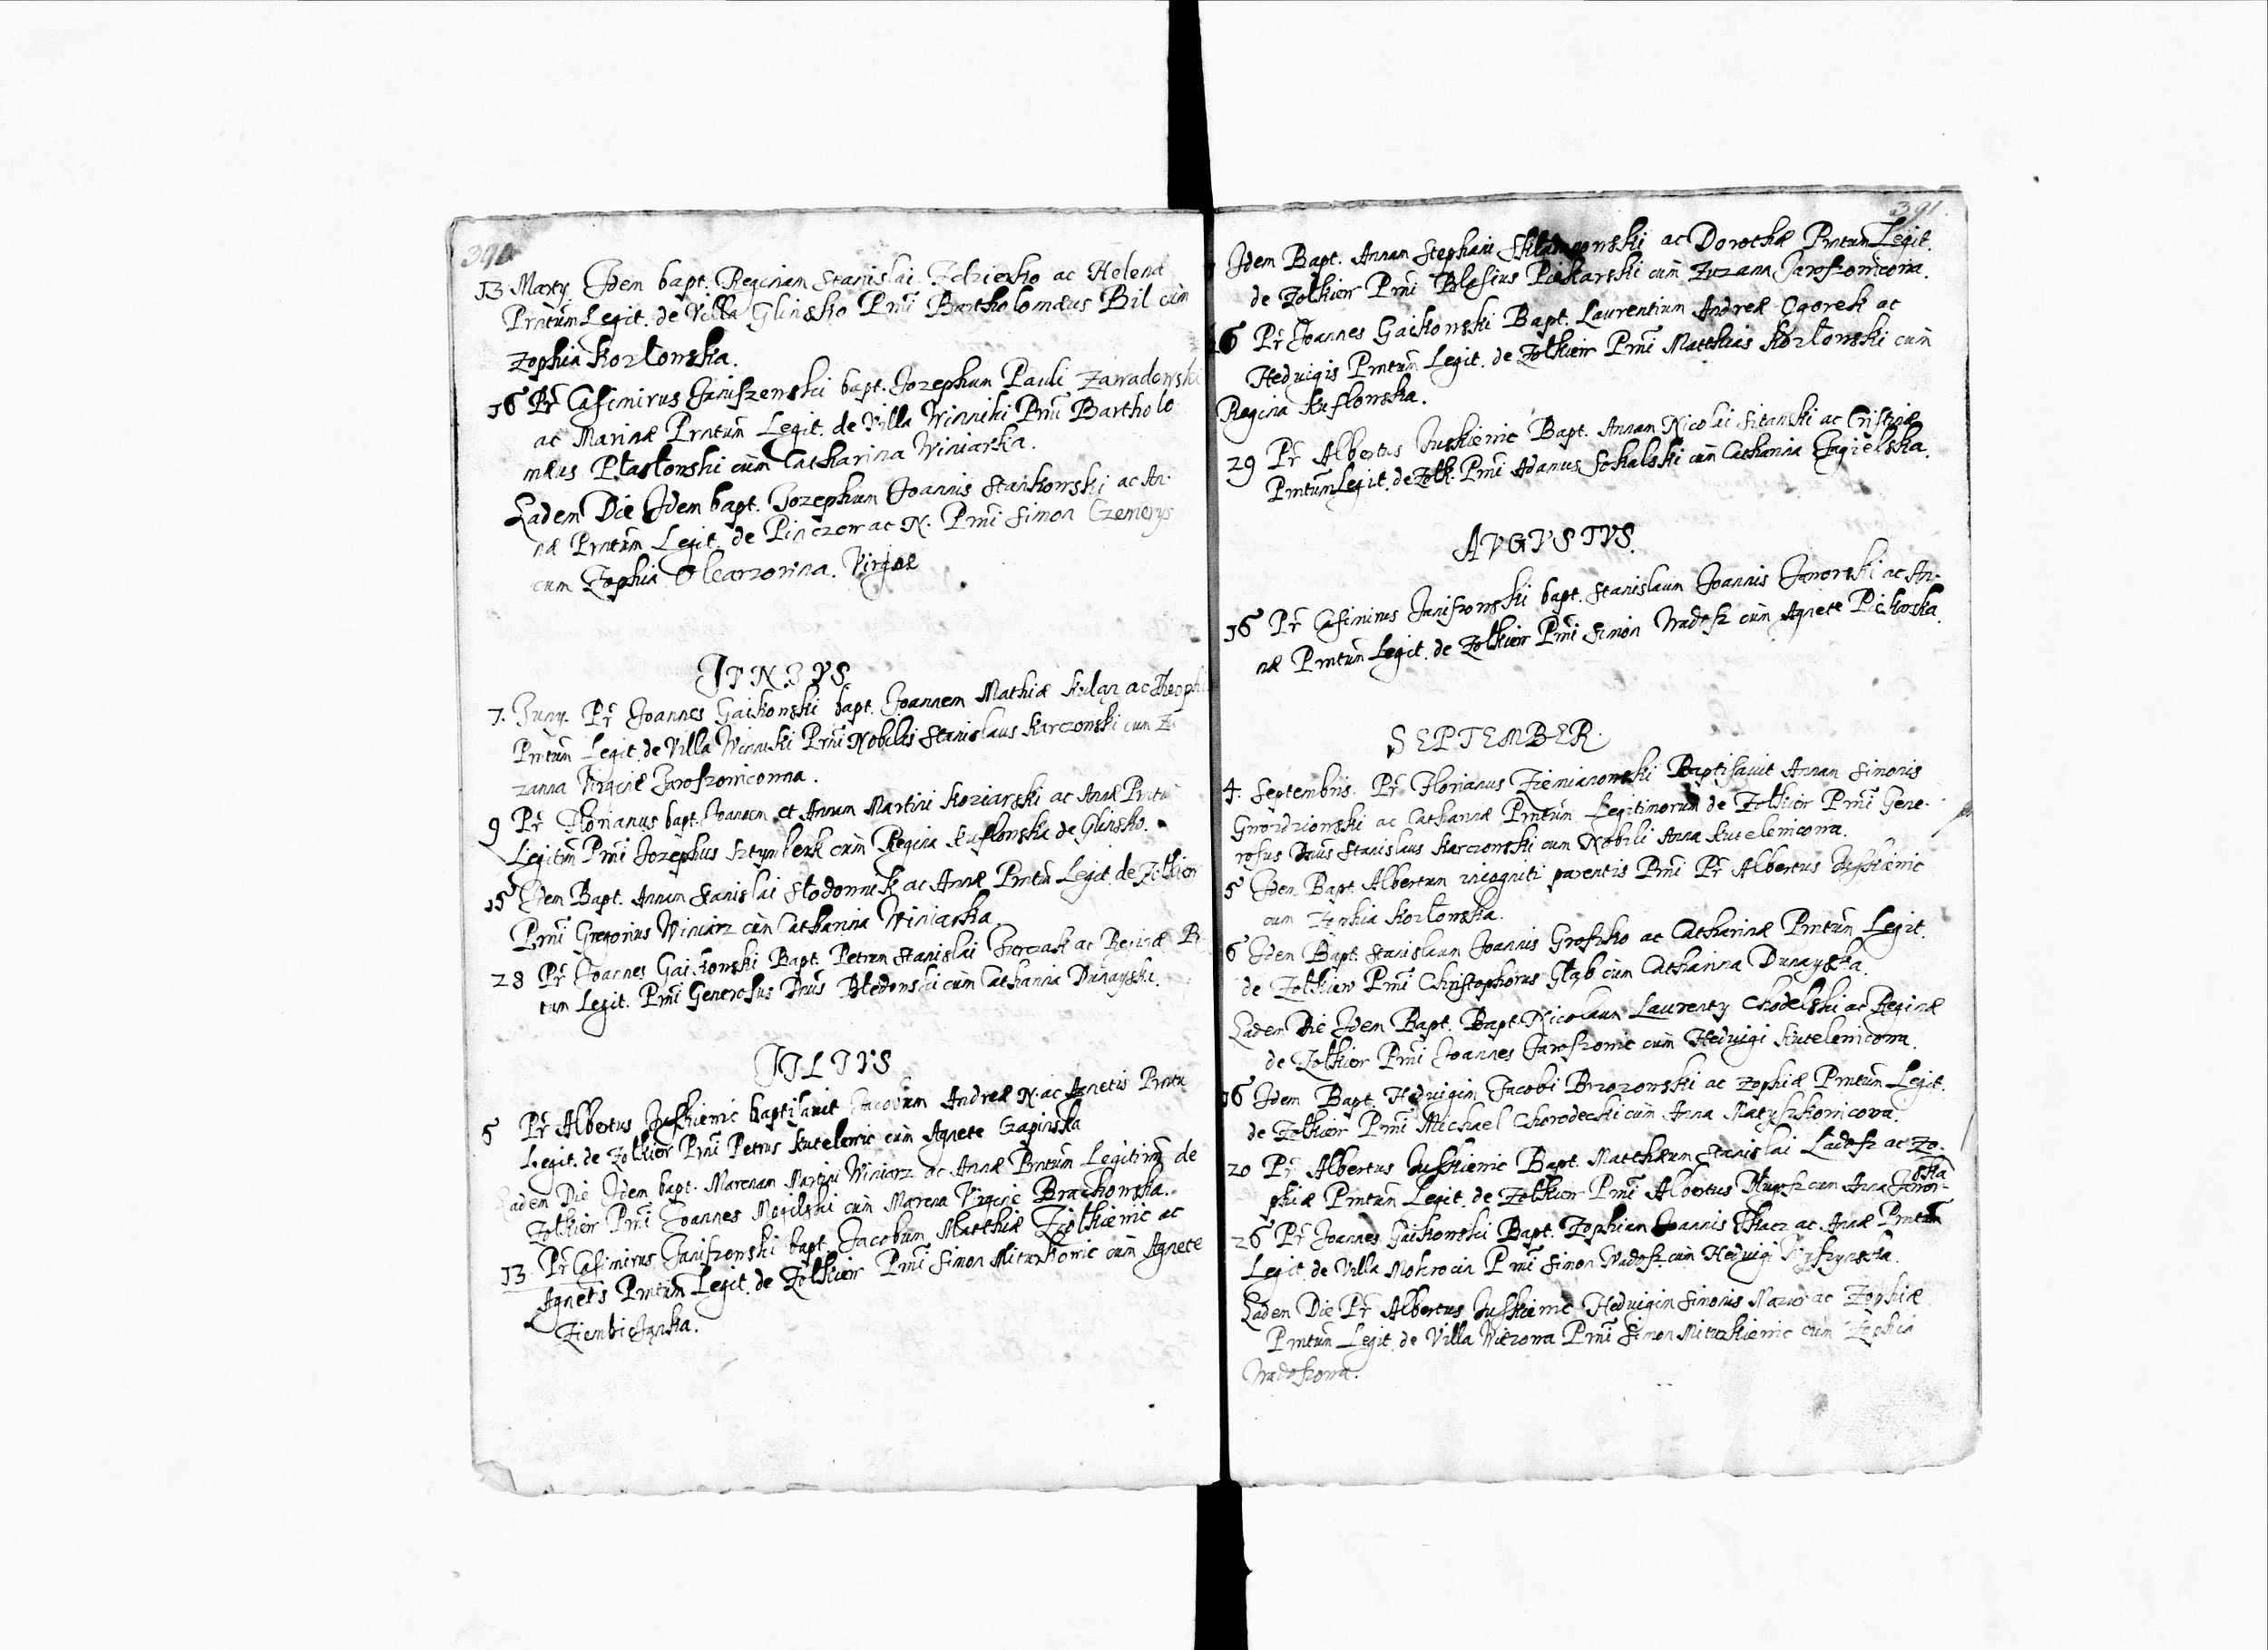 390
13 Marty. Idem bapt. Reginam Stanislai Zdzierko ac Helena
Prntum Legit. de Villa Glinsko Prni Bartholomæus Bil cum
Zophia Kozłowska.
16 Pr Casimirus Janiszewski bapt. Jozephum Pauli Zawadowski
ac Marinæ Prntum Legit. de Villa Winniki Prni Bartholo
mæus Ptasłowski cum Catharina Winiarska.
Eadem Die Idem bapt. Jozephum Joannis Stankowski ac An-
næ Prntum Legit. de Pinczow ac N. Prni Simon Czemerys
cum Zophia Olearzowna. Virgine
JVNIVS
7. Juny. Pr Joannes Gaikowski bapt. Joannem Mathiæ Kulaz ac Theophi
Prntum Legit. de Villa Winniki Prni Nobilis Stanislaus Karczowski cum Zu
zanna Virgine Jaroszowicowna.
9 Pr Florianus bapt. Joannem et Annam Martini Koziarski ac Annæ Prntu
Legitim Prni Jozephus Sztymberk cum Regina Kuflowska de Glinsko.
15 Idem Bapt. Annam Stanislai Słodownik ac Annæ Prntu Legit. de Zolkiew
Prni Gregorius Winiarz cum Catharina Winiarska.
28 Pr Joannes Gaikowski Bapt. Petrum Stanislai ac Reginæ Pr
tum Legit. Prni Generosus Dnus Błedowski cum Catharina Dunayski.
JVLIVS
5 Pr Albertus Juskiewic baptisavit Jacobum Andreæ N. ac Agnetis Prntu
Legit. de Zolkiew Prni Petrus Kutelewic cum Agnete Czapinska
Eadem Die Idem bapt. Marenam Martini Winiarz ac Annæ Prntum Legitim de
Zolkiew Prni Joannes Mogilski cum Marena Virgine Braikowska.
13 Pr Casimirus Janiszowski bapt. Jacobum Matthiæ Ziolkiewic ac
Agnetis Prntum Legit. de Zolkiew Prni Simon Miturkowic cum Agnete
Ziembicanka.
391.
Idem Bapt. Annam Stephani ac Dorothæ Prntum Legit.
de Zolkiew Prni Blasius Piekarski cum Zuzana Jaroszowicowa.
16 Pr Joannes Gaikowski Bapt. Laurentium Andreæ Ogorek ac
Hedvigis Prntum Legit. de Zolkiew Prni Matthias Kozłowski cum
Regina Kuflowska.
29 Pr Albertus Juskiewic Bapt. Annam Nicolai Sitanski ac Cristinæ
Prntum Legit. de Zolk. Prni Adamus Sokalski cum Catharina Jagielska.
AVGVSTVS.
16 Pr Casimirus Janiszowski bapt. Stanislaum Joannis Janowski ac An-
næ Prntum Legit. de Zolkiew Prni Simon Wadosz cum Agnete Piekarska.
SEPTEMBER.
4. Septembris. Pr Florianus Ziemianowski Baptisauit Annam Simonis
Gwozdziowski ac Catharinæ Prntum Legitimorum de Zolkiew Prni Gene-
rosus Dnus Stanislaus Karczowski cum Nobili Anna Kutelewicowa.
5 Idem Bapt. Albertum incogniti parentis Prni Pr Albertus Juskiewic
cum Zophia Kozłowska.
6 Idem Bapt. Stanislaum Joannis Groszko ac Catharinæ Prntum Legit.
de Zolkiew Prni Christophorus Głąb cum Catharina Dunayska.
Eadem Die Idem Bapt. Bapt. Nicolaum Laurenty Chodelski ac Reginæ
de Zolkiew Prni Joannes Jaroszowic cum Hedvigi Kutelewicowa.
16 Idem Bapt. Hedvigim Jacobi Brzozowski ac Zophiæ Prntum Legit.
de Zolkiew Prni Michael Chorodecki cum Anna Matyszkowicowa.
20 Pr Albertus Juskiewic Bapt. Matthæum Stanislai Ladosz ac Zo-
phiæ Prntum Legit. de Zolkiew Prni Albertus Długosz cum Anna Janow-
ska
26 Pr Joannes Gaikowski Bapt. Zophiam Joannis Tkacz ac Annæ Prntum
Legit. de Villa Mokrocin Prni Simon Wadosz cum Hedvigi Kyszynska.
Eadem Die Pr Albertus Juskiewic Hedvigim Simonis Mazur ac Zophiæ
Prntum Legit. de Villa Wiezowa Prni Simon Miturkiewic cum Zophia
Wadoszowa.